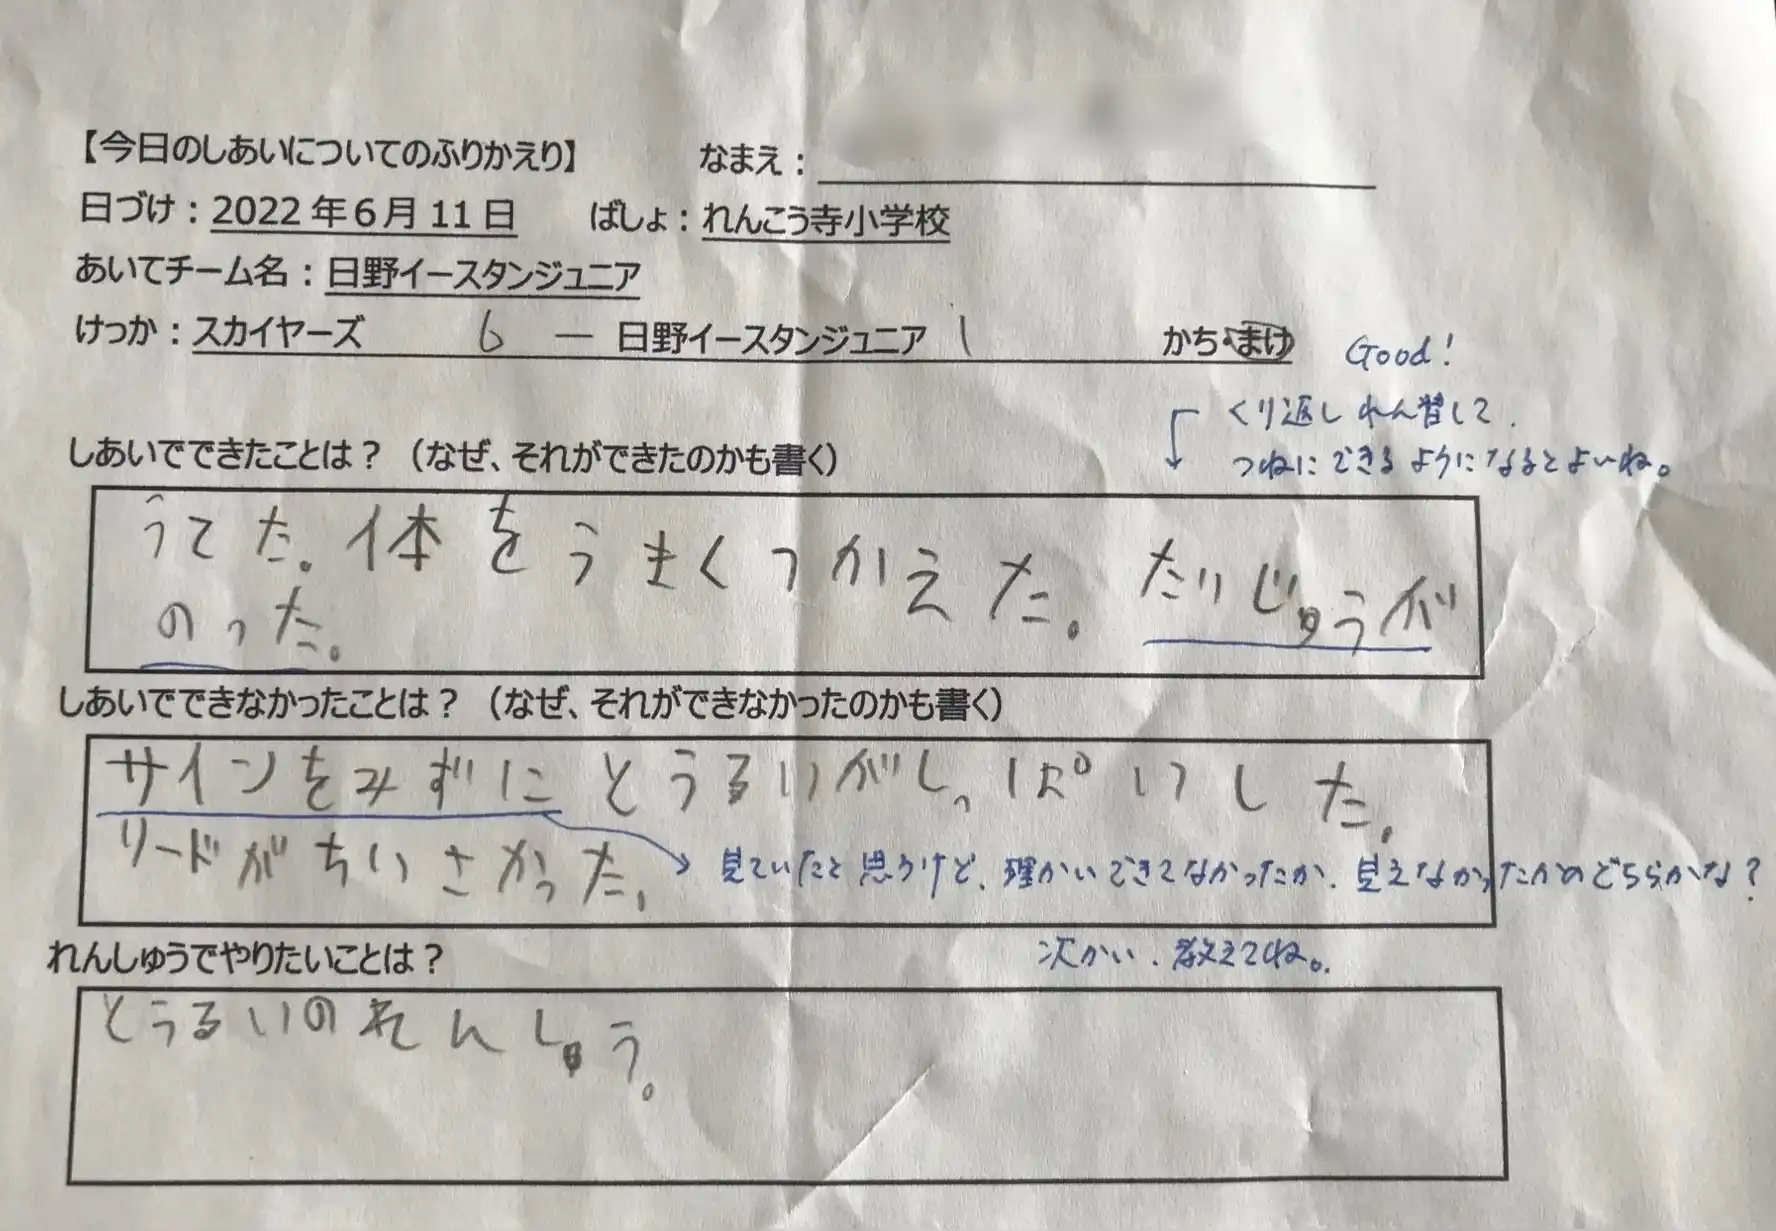 【今日のしあいについてのふりかえり】 なまえ：
日づけ：2022年6月11日 ばしょ：れんこう寺小学校
あいてチーム名：日野イースタンジュニア
けっか：スカイヤーズ 6 ― 日野イースタンジュニア 1 かち・まけ
Good!
くり返しれん習して、
つねにできるようになるとよいね。
しあいでできたことは？（なぜ、それができたのかも書く）
うてた。体をうまくつかえた。たいじゅうが
のった。
しあいでできなかったことは？（なぜ、それができなかったのかも書く）
サインをみずにとうるいがしっぱいした。
リードがちいさかった。
見ていたと思うけど、理かいできてなかったか、見えなかったかのどちらかな？
次かい、教えてね。
れんしゅうでやりたいことは？
とうるいのれんしゅう。